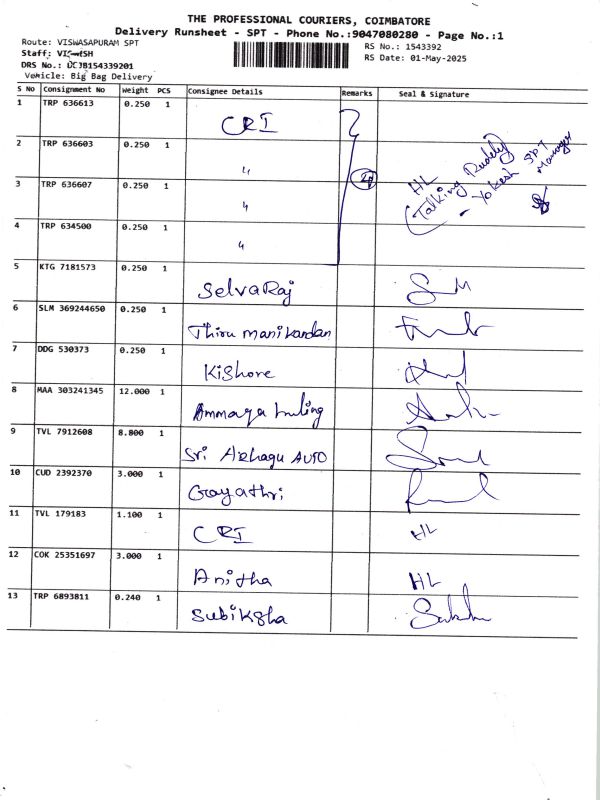 THE PROFESSIONAL COURIERS, COIMBATORE
Delivery Runsheet - SPT - Phone No.:9047080280 - Page No.:1
Route: VISWASAPURAM SPT
RS No.: 1543392
Staff:
RS Date: 01-May-2025
DRS No.: DCJB154339201
Vehicle: Big Bag Delivery
S No Consignment No Weight PCS Consignee Details Remarks Seal & Signature
1 TRP 636613 0.250 1 CRI
2 TRP 636603 0.250 1 "
3 TRP 636607 0.250 1 " HL
(Talking Rudely)
- Yokesh SPT Manager
4 TRP 634500 0.250 1 "
5 KTG 7181573 0.250 1 Selvaraj
6 SLM 369244650 0.250 1 Thiru manikandan
7 DDG 530373 0.250 1 Kishore
8 MAA 303241345 12.000 1
9 TVL 7912608 8.800 1 Sri Azhagu Auto
10 CUD 2392370 3.000 1 Gayathri
11 TVL 179183 1.100 1 CRI HL
12 COK 25351697 3.000 1 Anitha HL
13 TRP 6893811 0.240 1 Subiksha